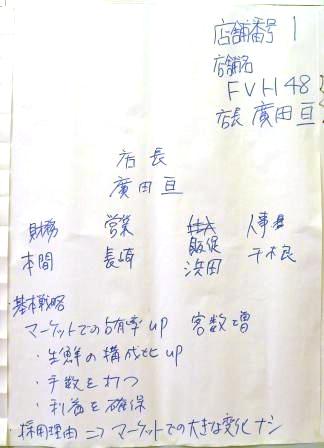 店舗番号 1
店舗名
FVH48
店長 廣田 亘
店長
廣田 亘
財務 営業 仕入 販促 人事
本間 長崎 浜田 千木良
・基本戦略
マーケットでの占有率up 客数増
・生鮮の構成比up
・手数を打つ
・利益を確保
・採用理由⇒マーケットでの大きな変化ナシ